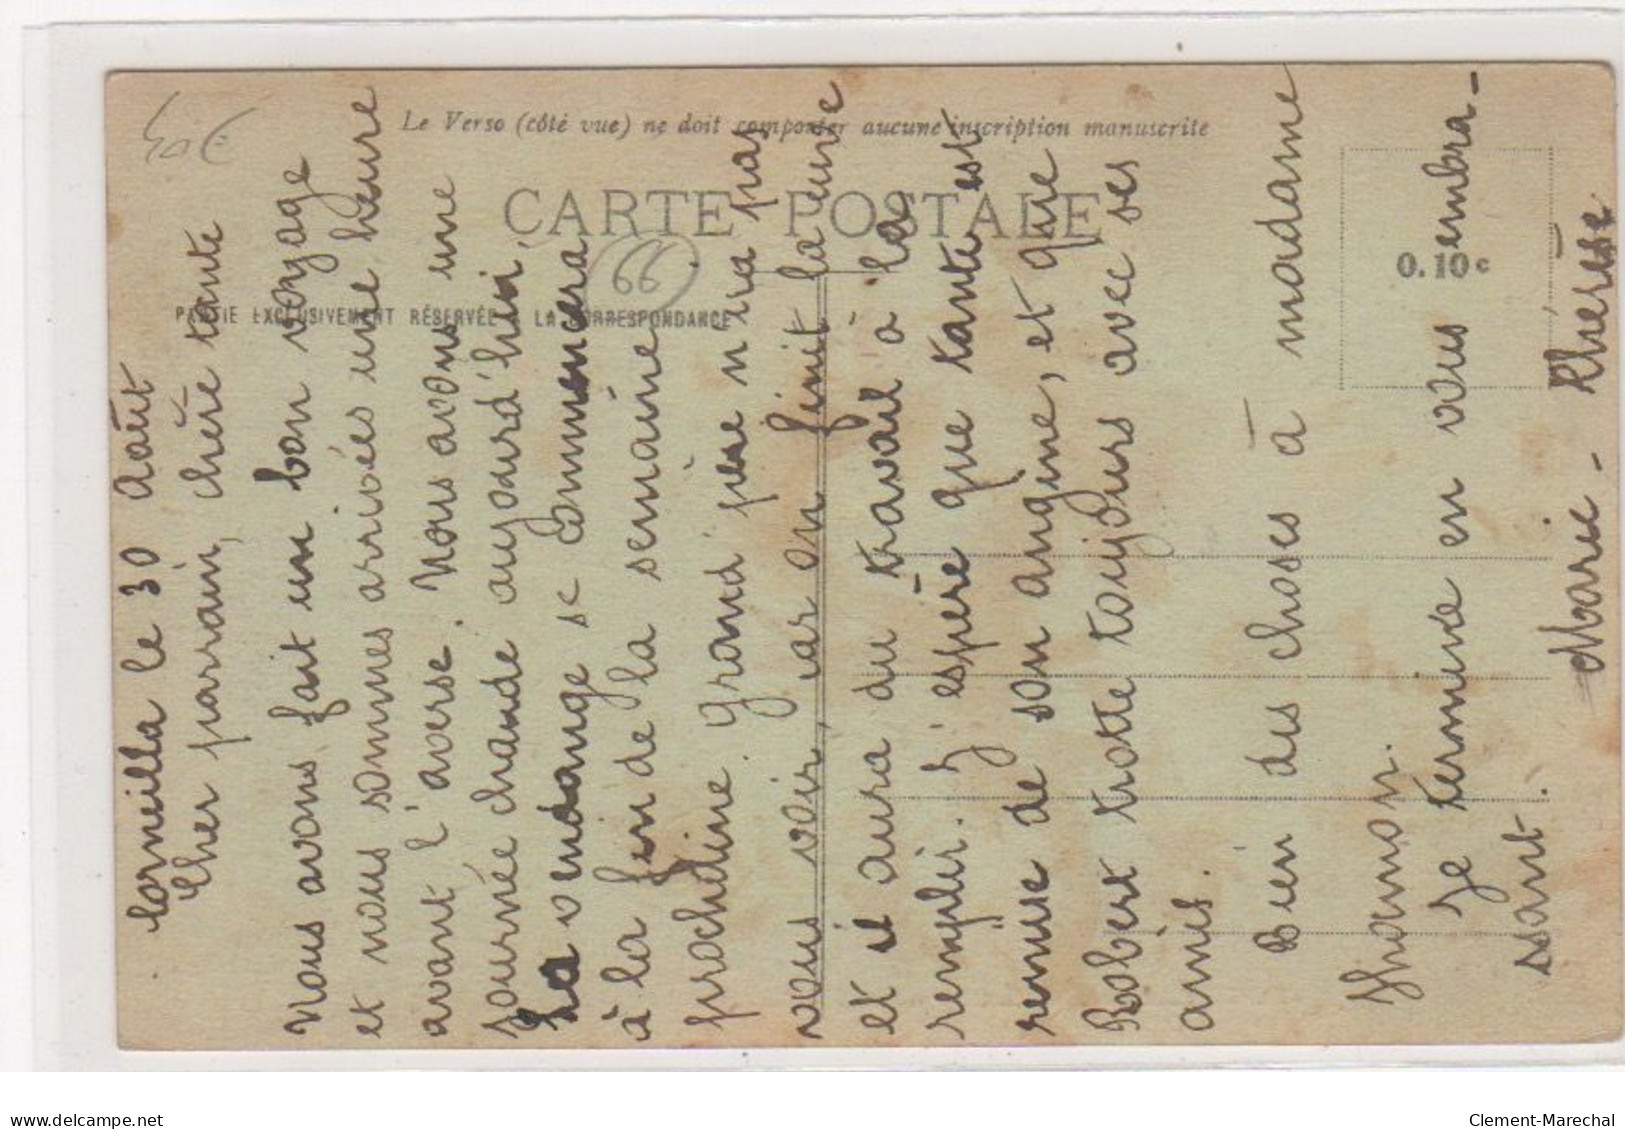 Le Verso (côté vue) ne doit comporter aucune inscription manuscrite
CARTE POSTALE
PARTIE EXCLUSIVEMENT RÉSERVÉE A LA CORRESPONDANCE
0.10 c
40€
66
Corneilla le 30 Août
Cher parrain, chère tante
Nous avons fait un bon voyage
et nous sommes arrivées une heure
avant l'averse. Nous avons une
journée chaude aujourd'hui,
La vendange se commencera
à la fin de la semaine
prochaine. Grand père n'ira pas
vous voir, car on finit la cuve
et il aura du travail à la
remplir. J'espère que tante est
remise de son angine, et que
Robert trotte toujours avec ses
amis.
Bien des choses à madame
Je termine en vous embra-
ssant.
Marie-Thérèse
www.delcampe.net
Clement-Marechal